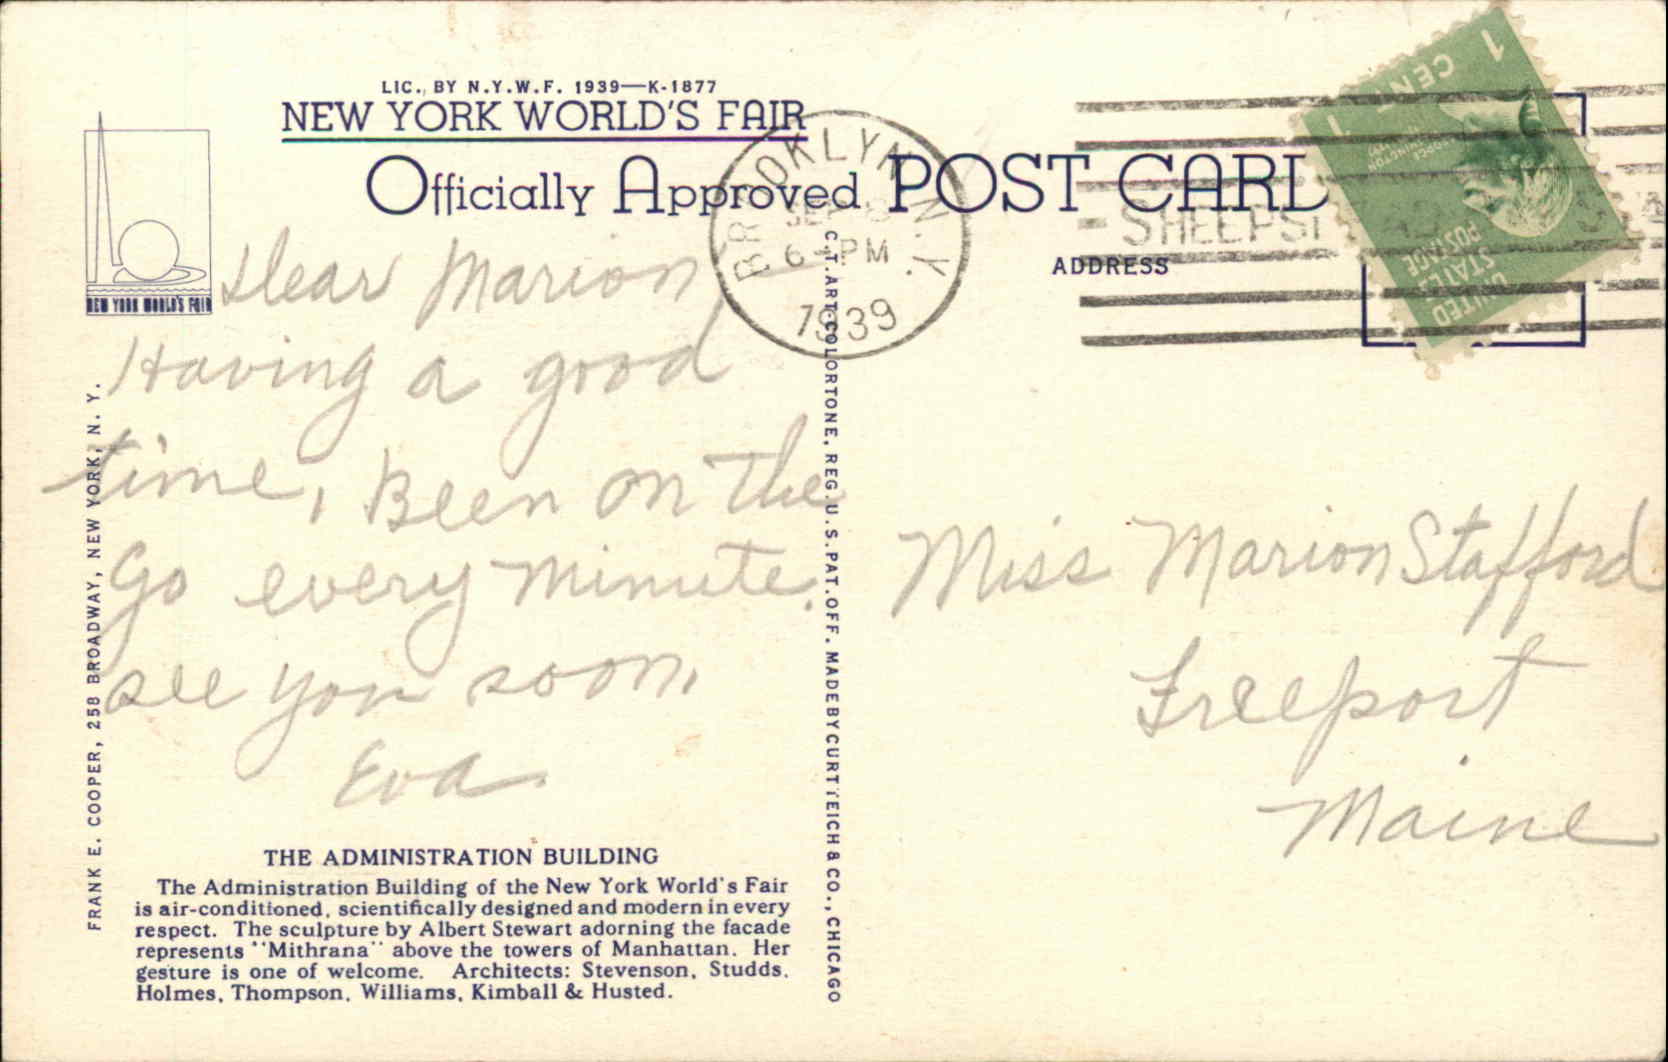 LIC., BY N.Y.W.F. 1939—K-1877
NEW YORK WORLD'S FAIR
Officially Approved POST CARD
ADDRESS
NEW YORK WORLD'S FAIR
BROOKLYN, N.Y.
6 PM
1939
SHEEPSHEAD
1 CENT 1
GEORGE WASHINGTON
UNITED STATES POSTAGE
Dear Marion
Having a good
time, Been on the
Go every minute.
see you soon,
Eva
Miss Marion Stafford
Freeport
Maine
THE ADMINISTRATION BUILDING
The Administration Building of the New York World's Fair
is air-conditioned, scientifically designed and modern in every
respect. The sculpture by Albert Stewart adorning the facade
represents "Mithrana" above the towers of Manhattan. Her
gesture is one of welcome. Architects: Stevenson, Studds,
Holmes, Thompson, Williams, Kimball & Husted.
FRANK E. COOPER, 258 BROADWAY, NEW YORK, N. Y.
C.T. ART-COLORTONE, REG. U.S. PAT. OFF. MADE BY CURT TEICH & CO., CHICAGO